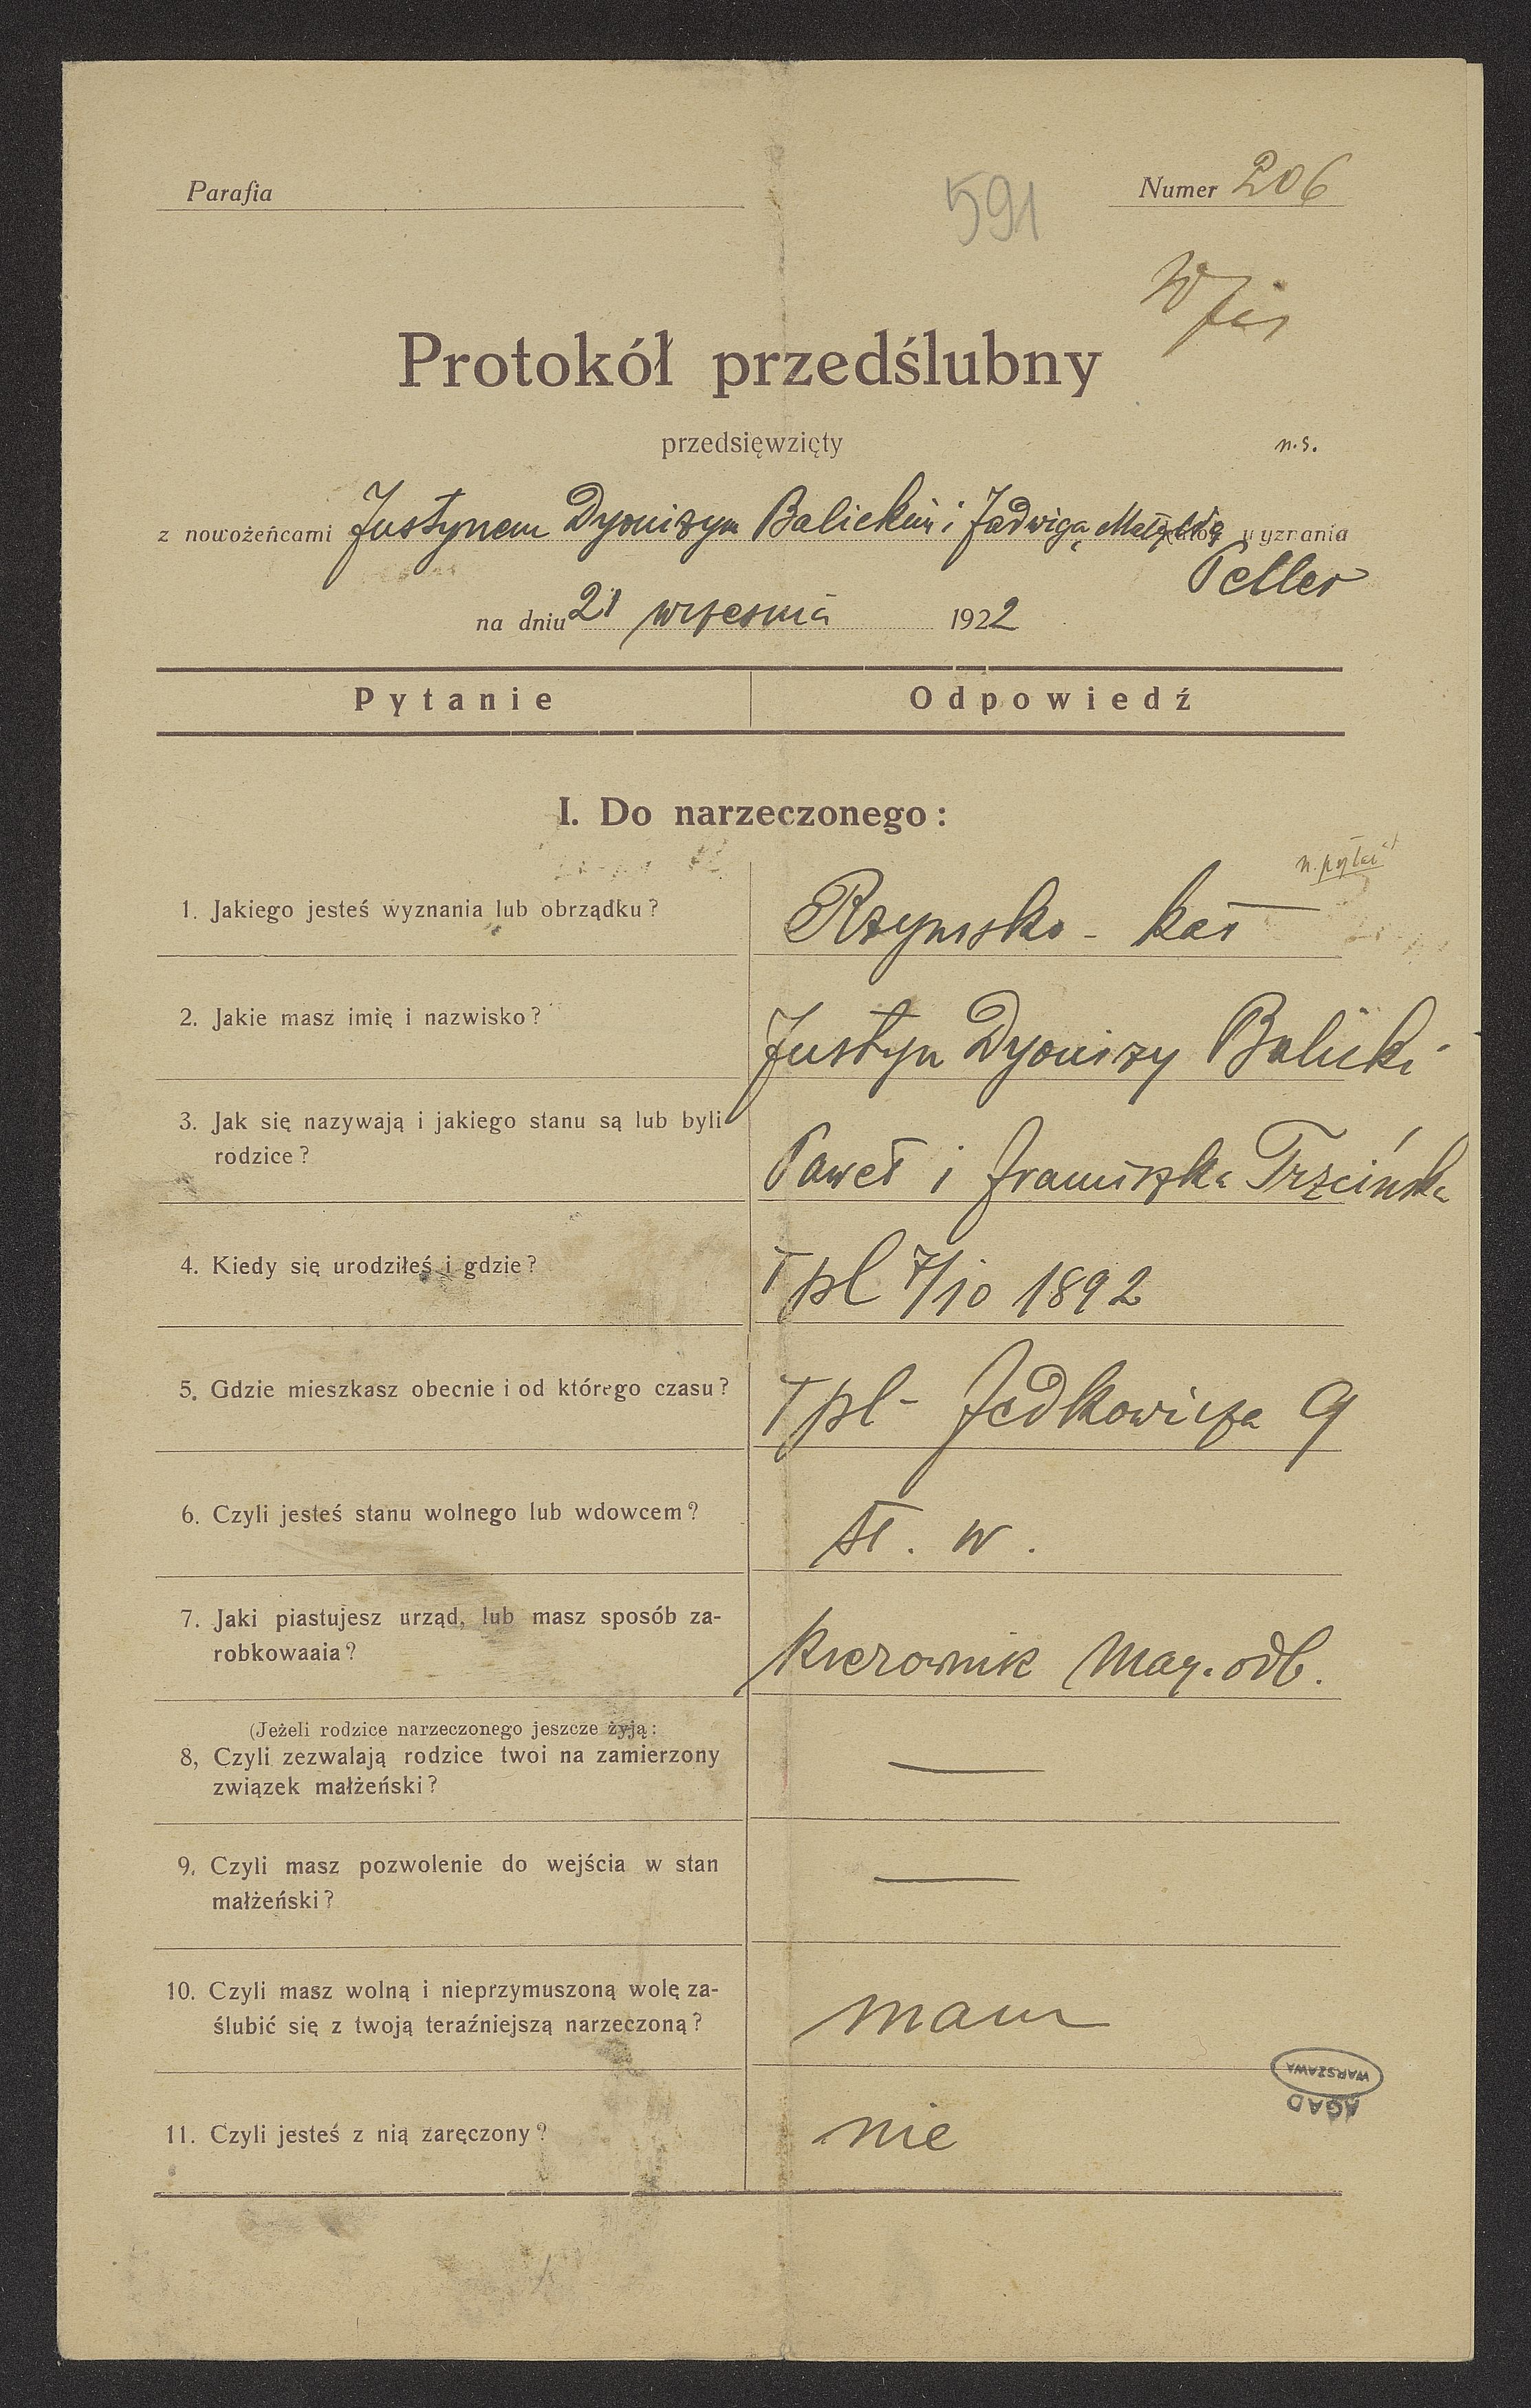 Parafia
591
Numer 206
Protokół przedślubny
przedsięwzięty
n. s.
z nowożeńcami Justynem Dyonizym Balickim i Jadwigą Matyldą wyznania
Peller
na dniu 21 września 1922
Pytanie Odpowiedź
I. Do narzeczonego:
1. Jakiego jesteś wyznania lub obrządku? Rzymsko - kat
2. Jakie masz imię i nazwisko? Justyn Dyonizy Balicki
3. Jak się nazywają i jakiego stanu są lub byli
rodzice? Paweł i Franciszka Trzcińska
4. Kiedy się urodziłeś i gdzie? Tpl 7/10 1892
5. Gdzie mieszkasz obecnie i od którego czasu? Tpl - Fedkowicza 9
6. Czyli jesteś stanu wolnego lub wdowcem? st. w.
7. Jaki piastujesz urząd, lub masz sposób za-
robkowaaia? Kierownik Mag. odb.
(Jeżeli rodzice narzeczonego jeszcze żyją:
8, Czyli zezwalają rodzice twoi na zamierzony
związek małżeński? —
9. Czyli masz pozwolenie do wejścia w stan
małżeński? —
10. Czyli masz wolną i nieprzymuszoną wolę za-
ślubić się z twoją teraźniejszą narzeczoną? mam
11. Czyli jesteś z nią zaręczony? nie
WARSZAWA
AGAD